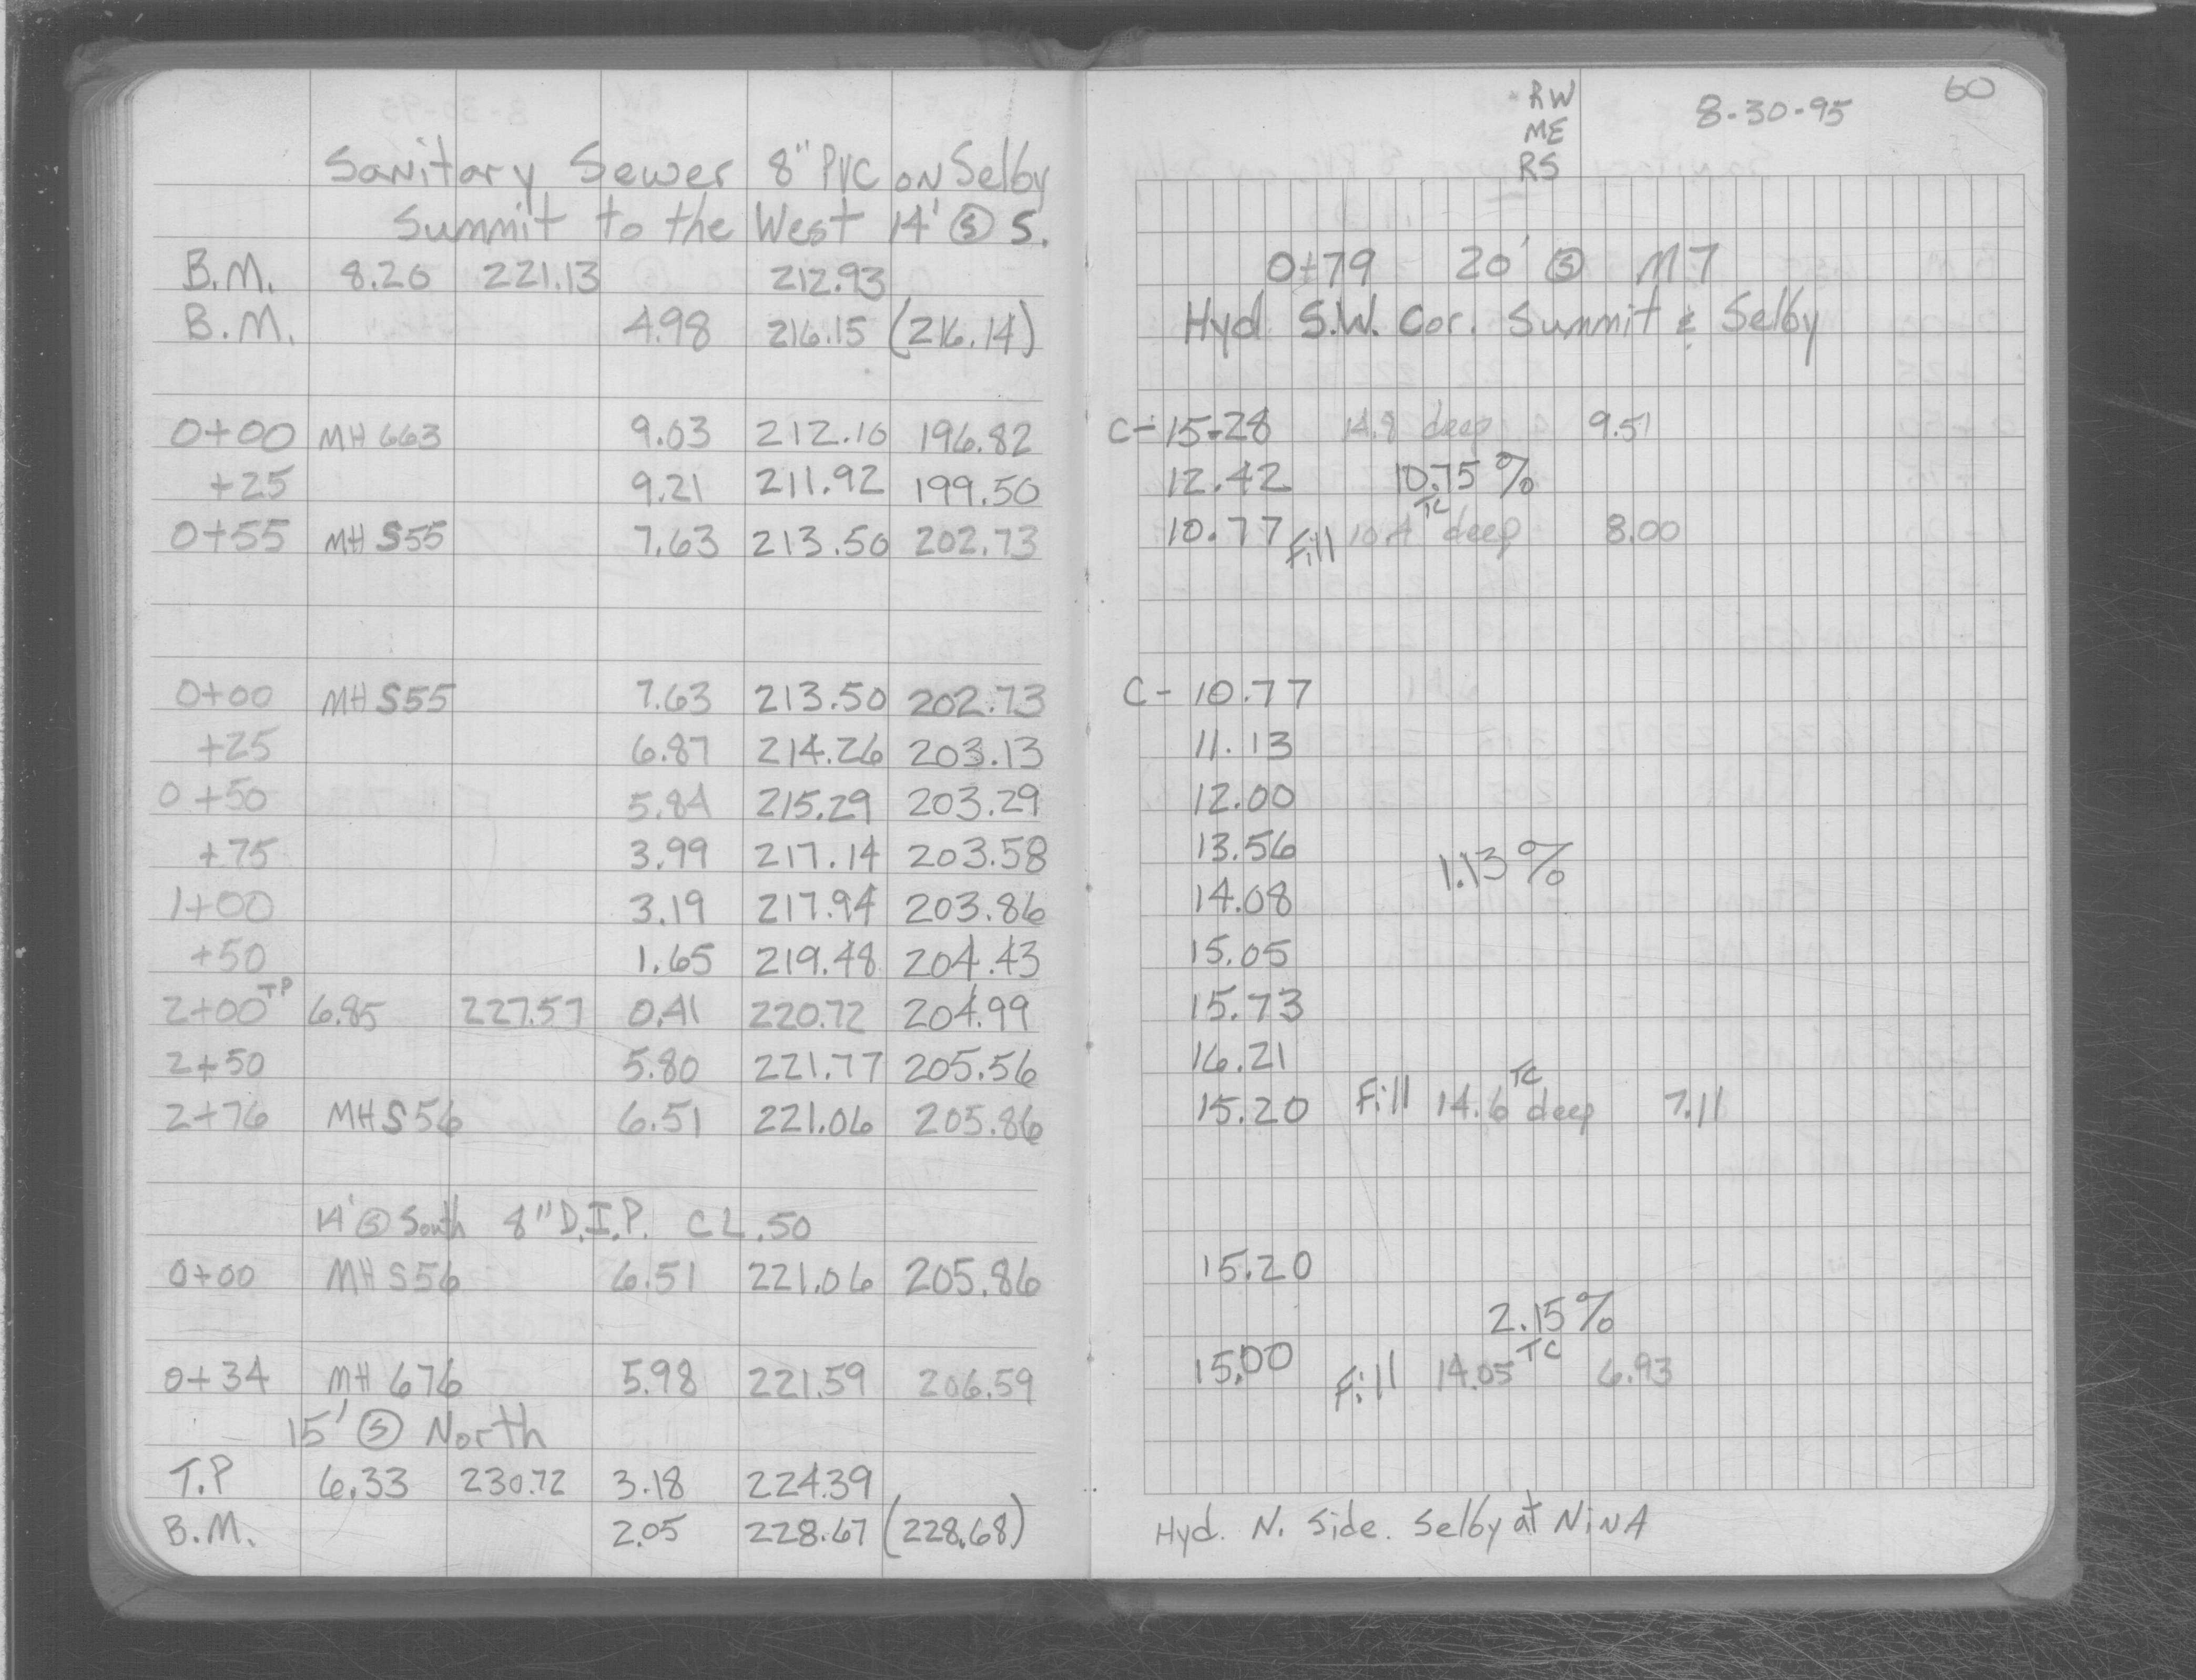 Sanitary Sewer 8" PVC on Selby
Summit to the West 14' Ⓢ S.
B.M. 8.20 221.13 212.93
B.M. 4.98 216.15 (216.14)
0+00 MH 663 9.03 212.10 196.82
+25 9.21 211.92 199.50
0+55 MH S55 7.63 213.50 202.73
0+00 MH S55 7.63 213.50 202.73
+25 6.87 214.26 203.13
0+50 5.84 215.29 203.29
+75 3.99 217.14 203.58
1+00 3.19 217.94 203.86
+50 1.65 219.48 204.43
2+00 TP 6.85 227.57 0.41 220.72 204.99
2+50 5.80 221.77 205.56
2+76 MH S56 6.51 221.06 205.86
14' Ⓢ South 8" D.I.P. CL.50
0+00 MH S56 6.51 221.06 205.86
0+34 MH 676 5.98 221.59 206.59
15' Ⓢ North
T.P 6.33 230.72 3.18 224.39
B.M. 2.05 228.67 (228.68)
RW
ME
RS
8-30-95
60
0+79 20' Ⓢ M7
Hyd S.W. Cor. Summit & Selby
C- 15.28 14.8 deep 9.51
12.42 10.75 %
10.77 Fill 10.4 TC deep 8.00
C- 10.77
11.13
12.00
13.56
1.13 %
14.08
15.05
15.73
16.21
15.20 Fill 14.6 TC deep 7.11
15.20
2.15 %
15.00 Fill 14.05 TC 6.93
Hyd. N. Side. Selby at NiNA